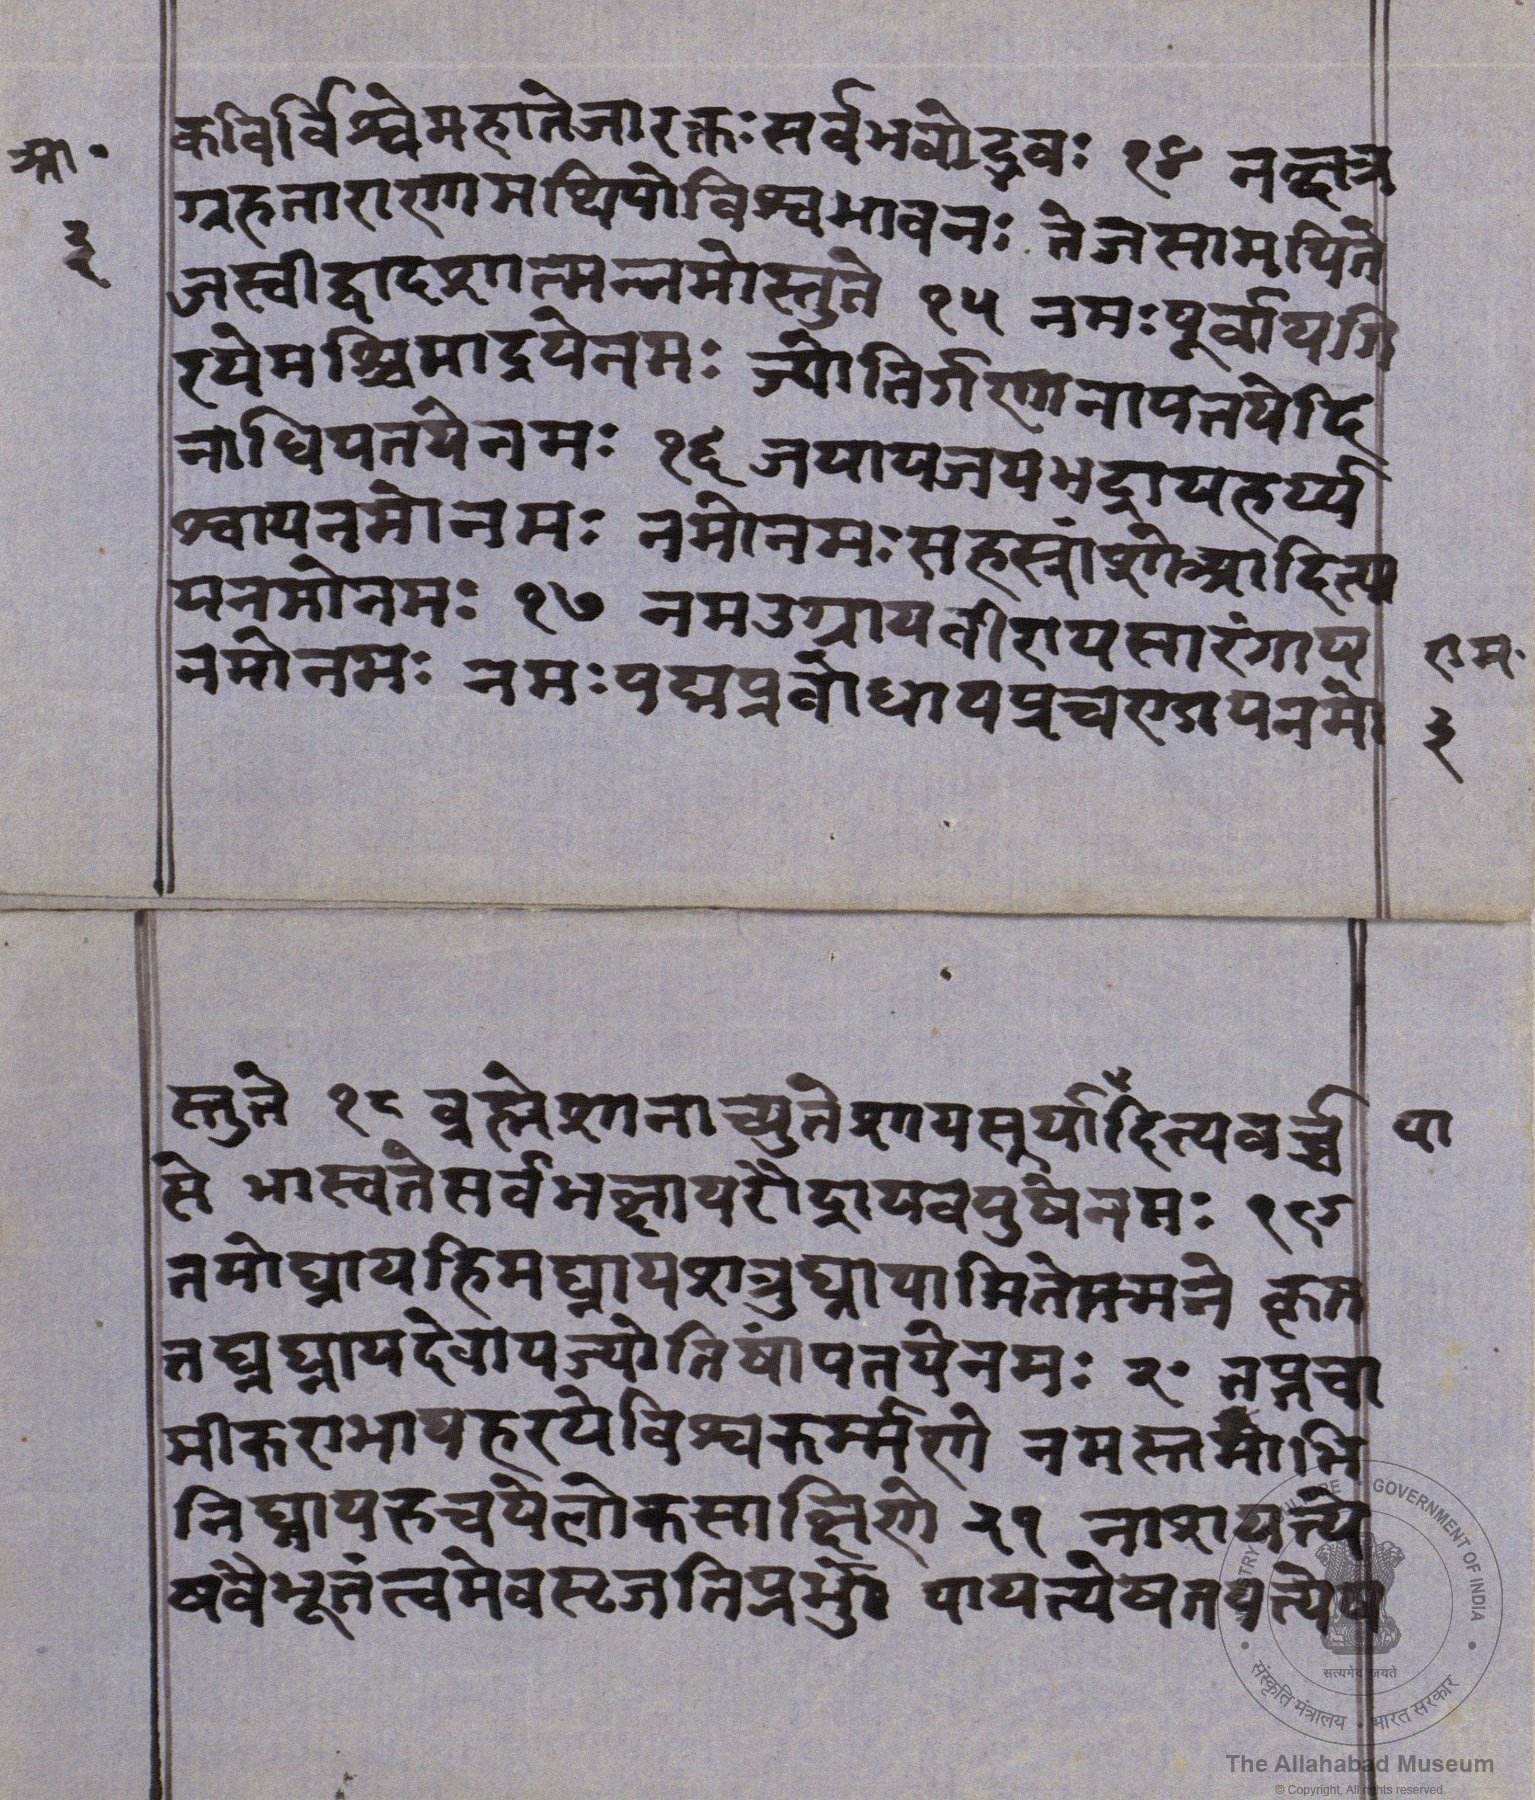 कविर्विश्वेमहातेजारक्तःसर्वभवोद्भवः १४ नक्षत्र
आ॰
ग्रहताराणामधिपोविश्वभावनः तेजसामपिते
३
जस्वीद्वादशात्मन्नमोस्तुते १५ नमःपूर्वायगि
रयेमश्चिमाद्रयेनमः ज्योतिर्गणनापतयेदि
नाधिपतयेनमः १६ जयायजयभद्रायहर्य्य
श्वायनमोनमः नमोनमःसहस्रांशोआदित्या
यनमोनमः १७ नमउग्रायवीरायसारंगाय
राम॰
नमोनमः नमःपद्मप्रवोधायप्रचण्डायनमो
३
स्तुते १८ व्रह्मेशानाच्युतेशायसूर्यादित्यवर्च्च
या
से भास्वतेसर्वभक्षायरौद्रायवपुषेनमः १९
तमोघ्नायहिमघ्नायशत्रुघ्नायामितेमत्मने कृत
तघ्नघ्नायदेवायज्योतिषांपतयेनमः २॰ तप्तचा
मीकराभायहरयेविश्वकर्म्मणे नमस्तमोभि
निघ्नायरुचयेलोकसाक्षिणे २१ नाशयत्ये
षवैभूतंत्वमेवसृजतिप्रभुः पायत्येषतपत्येष
सत्यमेव जयते
MINISTRY OF CULTURE • GOVERNMENT OF INDIA
संस्कृति मंत्रालय • भारत सरकार
The Allahabad Museum
© Copyright, All rights reserved.